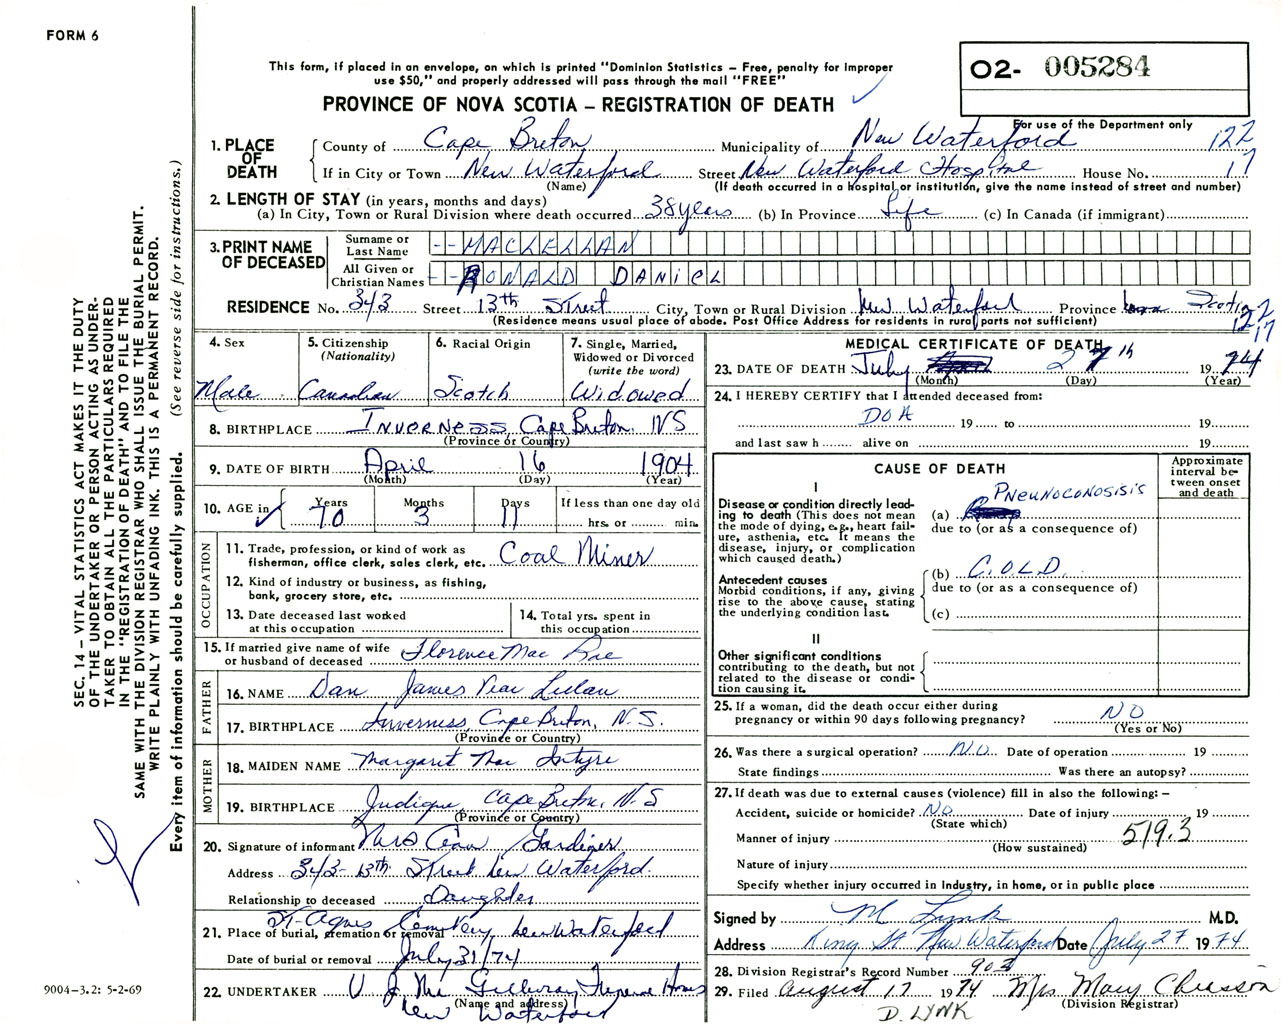 FORM 6
This form, if placed in an envelope, on which is printed "Dominion Statistics – Free, penalty for improper
use $50," and properly addressed will pass through the mail "FREE"
O2- 005284
PROVINCE OF NOVA SCOTIA – REGISTRATION OF DEATH
For use of the Department only
1. PLACE OF DEATH
County of Cape Breton Municipality of New Waterford 122
If in City or Town New Waterford Street New Waterford Hospital House No. 17
(Name) (If death occurred in a hospital or institution, give the name instead of street and number)
2. LENGTH OF STAY (in years, months and days)
(a) In City, Town or Rural Division where death occurred 38 years (b) In Province Life (c) In Canada (if immigrant)
3. PRINT NAME OF DECEASED
Surname or Last Name --MACLELLAN
All Given or Christian Names --RONALD DANIEL
RESIDENCE No. 343 Street 13th Street City, Town or Rural Division New Waterford Province Scotia
(Residence means usual place of abode. Post Office Address for residents in rural parts not sufficient)
122
17
4. Sex
Male
5. Citizenship
(Nationality)
Canadian
6. Racial Origin
Scotch
7. Single, Married,
Widowed or Divorced
(write the word)
Widowed
8. BIRTHPLACE Inverness Cape Breton, NS
(Province or Country)
9. DATE OF BIRTH April 16 1904
(Month) (Day) (Year)
10. AGE in
Years 70 Months 3 Days 11
If less than one day old
hrs. or min.
OCCUPATION
11. Trade, profession, or kind of work as
fisherman, office clerk, sales clerk, etc. Coal Miner
12. Kind of industry or business, as fishing,
bank, grocery store, etc.
13. Date deceased last worked
at this occupation
14. Total yrs. spent in
this occupation
15. If married give name of wife
or husband of deceased Florence Mac Rae
FATHER
16. NAME Dan James Mac Lellan
17. BIRTHPLACE Inverness, Cape Breton, N.S.
(Province or Country)
MOTHER
18. MAIDEN NAME Margaret Mac Intyre
19. BIRTHPLACE Judique, Cape Breton, N.S
(Province or Country)
20. Signature of informant Mrs Gardiner
Address 343-13th Street New Waterford.
Relationship to deceased Daughter
21. Place of burial, cremation or removal St-Agnes Cemetery, New Waterford
Date of burial or removal July 31/74
22. UNDERTAKER V J Mc Gillivray Funeral Home
(Name and address)
New Waterford
MEDICAL CERTIFICATE OF DEATH
23. DATE OF DEATH July 27th 1974
(Month) (Day) (Year)
24. I HEREBY CERTIFY that I attended deceased from:
DOA 19 to 19
and last saw h alive on 19
CAUSE OF DEATH
Approximate interval between onset and death
I
Disease or condition directly lead-
ing to death (This does not mean
the mode of dying, e.g., heart fail-
ure, asthenia, etc. It means the
disease, injury, or complication
which caused death.)
(a) PNEUNOCONOSISIS
due to (or as a consequence of)
Antecedent causes
Morbid conditions, if any, giving
rise to the above cause, stating
the underlying condition last.
(b) C.O.L.D.
due to (or as a consequence of)
(c)
II
Other significant conditions
contributing to the death, but not
related to the disease or condi-
tion causing it.
25. If a woman, did the death occur either during
pregnancy or within 90 days following pregnancy? NO
(Yes or No)
26. Was there a surgical operation? NO Date of operation 19
State findings Was there an autopsy?
27. If death was due to external causes (violence) fill in also the following: –
Accident, suicide or homicide? NO Date of injury 19
(State which)
Manner of injury 519.3
(How sustained)
Nature of injury
Specify whether injury occurred in Industry, in home, or in public place
Signed by M Lynk M.D.
Address King St New Waterford Date July 27 1974
28. Division Registrar's Record Number
29. Filed August 17 1974 Mrs Mary Chiasson
(Division Registrar)
D. LYNK
SEC. 14 – VITAL STATISTICS ACT MAKES IT THE DUTY
OF THE UNDERTAKER OR PERSON ACTING AS UNDER-
TAKER TO OBTAIN ALL THE PARTICULARS REQUIRED
IN THE "REGISTRATION OF DEATH" AND TO FILE THE
SAME WITH THE DIVISION REGISTRAR WHO SHALL ISSUE THE BURIAL PERMIT.
WRITE PLAINLY WITH UNFADING INK. THIS IS A PERMANENT RECORD.
Every item of information should be carefully supplied. (See reverse side for instructions.)
9004-3.2: 5-2-69